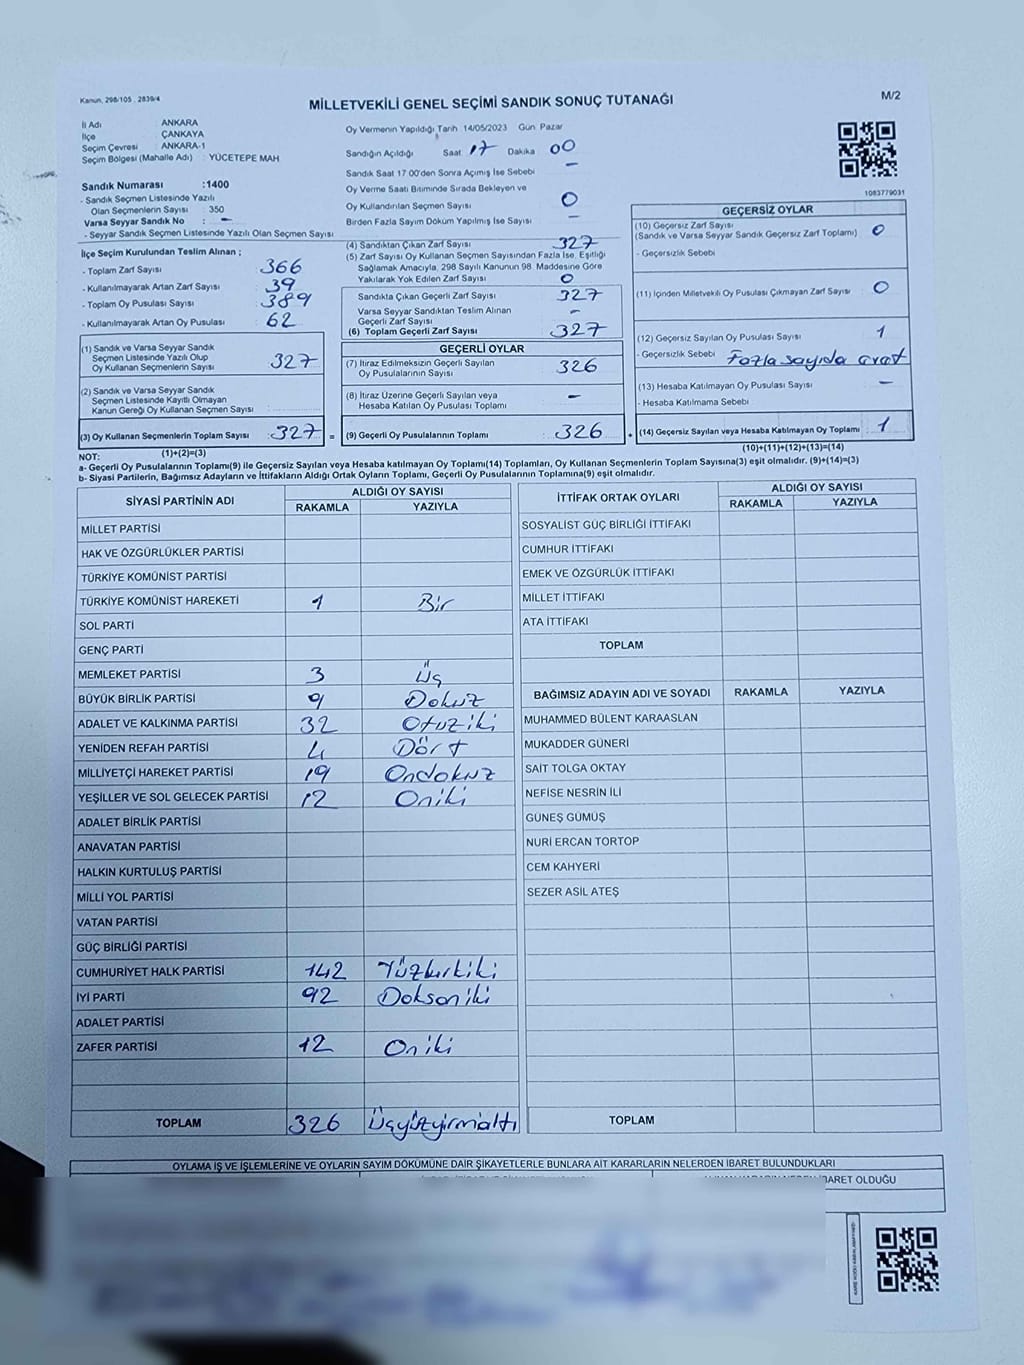 Kanun, 298/105 , 2839/4
MİLLETVEKİLİ GENEL SEÇİMİ SANDIK SONUÇ TUTANAĞI
M/2
İl Adı ANKARA
İlçe ÇANKAYA
Seçim Çevresi : ANKARA-1
Seçim Bölgesi (Mahalle Adı) : YÜCETEPE MAH
Sandık Numarası :1400
- Sandık Seçmen Listesinde Yazılı
Olan Seçmenlerin Sayısı : 350
Varsa Seyyar Sandık No : -
- Seyyar Sandık Seçmen Listesinde Yazılı Olan Seçmen Sayısı
İlçe Seçim Kurulundan Teslim Alınan ;
- Toplam Zarf Sayısı 366
- Kullanılmayarak Artan Zarf Sayısı 39
- Toplam Oy Pusulası Sayısı 389
- Kullanılmayarak Artan Oy Pusulası 62
(1) Sandık ve Varsa Seyyar Sandık
Seçmen Listesinde Yazılı Olup
Oy Kullanan Seçmenlerin Sayısı 327
(2) Sandık ve Varsa Seyyar Sandık
Seçmen Listesinde Kayıtlı Olmayan
Kanun Gereği Oy Kullanan Seçmen Sayısı
(3) Oy Kullanan Seçmenlerin Toplam Sayısı 327 =
(1)+(2)=(3)
Oy Vermenin Yapıldığı Tarih 14/05/2023 Gün Pazar
Sandığın Açıldığı Saat 17 Dakika 00
Sandık Saat 17 00'den Sonra Açımış İse Sebebi -
Oy Verme Saati Bitiminde Sırada Bekleyen ve
Oy Kullandırılan Seçmen Sayısı 0
Birden Fazla Sayım Döküm Yapılmış İse Sayısı -
(4) Sandıktan Çıkan Zarf Sayısı 327
(5) Zarf Sayısı Oy Kullanan Seçmen Sayısından Fazla İse, Eşitliği
Sağlamak Amacıyla, 298 Sayılı Kanunun 98. Maddesine Göre
Yakılarak Yok Edilen Zarf Sayısı 0
Sandıkta Çıkan Geçerli Zarf Sayısı 327
Varsa Seyyar Sandıktan Teslim Alınan
Geçerli Zarf Sayısı -
(6) Toplam Geçerli Zarf Sayısı 327
GEÇERLİ OYLAR
(7) İtiraz Edilmeksizin Geçerli Sayılan
Oy Pusulalarının Sayısı 326
(8) İtiraz Üzerine Geçerli Sayılan veya
Hesaba Katılan Oy Pusulası Toplamı -
(9) Geçerli Oy Pusulalarının Toplamı 326 +
1083779031
GEÇERSİZ OYLAR
(10) Geçersiz Zarf Sayısı
(Sandık ve Varsa Seyyar Sandık Geçersiz Zarf Toplamı) 0
- Geçersizlik Sebebi
(11) İçinden Milletvekili Oy Pusulası Çıkmayan Zarf Sayısı 0
(12) Geçersiz Sayılan Oy Pusulası Sayısı 1
- Geçersizlik Sebebi Fazla sayıda evet
(13) Hesaba Katılmayan Oy Pusulası Sayısı -
- Hesaba Katılmama Sebebi
(14) Geçersiz Sayılan veya Hesaba Katılmayan Oy Toplamı 1
(10)+(11)+(12)+(13)=(14)
NOT:
a- Geçerli Oy Pusulalarının Toplamı(9) ile Geçersiz Sayılan veya Hesaba katılmayan Oy Toplamı(14) Toplamları, Oy Kullanan Seçmenlerin Toplam Sayısına(3) eşit olmalıdır. (9)+(14)=(3)
b- Siyasi Partilerin, Bağımsız Adayların ve İttifakların Aldığı Ortak Oyların Toplamı, Geçerli Oy Pusulalarının Toplamına(9) eşit olmalıdır.
SİYASİ PARTİNİN ADI ALDIĞI OY SAYISI
RAKAMLA YAZIYLA
MİLLET PARTİSİ
HAK VE ÖZGÜRLÜKLER PARTİSİ
TÜRKİYE KOMÜNİST PARTİSİ
TÜRKİYE KOMÜNİST HAREKETİ 1 Bir
SOL PARTİ
GENÇ PARTİ
MEMLEKET PARTİSİ 3 Üç
BÜYÜK BİRLİK PARTİSİ 9 Dokuz
ADALET VE KALKINMA PARTİSİ 32 Otuziki
YENİDEN REFAH PARTİSİ 4 Dört
MİLLİYETÇİ HAREKET PARTİSİ 19 Ondokuz
YEŞİLLER VE SOL GELECEK PARTİSİ 12 Oniki
ADALET BİRLİK PARTİSİ
ANAVATAN PARTİSİ
HALKIN KURTULUŞ PARTİSİ
MİLLİ YOL PARTİSİ
VATAN PARTİSİ
GÜÇ BİRLİĞİ PARTİSİ
CUMHURİYET HALK PARTİSİ 142 Yüzkırkiki
İYİ PARTİ 92 Doksaniki
ADALET PARTİSİ
ZAFER PARTİSİ 12 Oniki
TOPLAM 326 Üçyüzyirmialtı
İTTİFAK ORTAK OYLARI ALDIĞI OY SAYISI
RAKAMLA YAZIYLA
SOSYALİST GÜÇ BİRLİĞİ İTTİFAKI
CUMHUR İTTİFAKI
EMEK VE ÖZGÜRLÜK İTTİFAKI
MİLLET İTTİFAKI
ATA İTTİFAKI
TOPLAM
BAĞIMSIZ ADAYIN ADI VE SOYADI RAKAMLA YAZIYLA
MUHAMMED BÜLENT KARAASLAN
MUKADDER GÜNERİ
SAİT TOLGA OKTAY
NEFİSE NESRİN İLİ
GÜNEŞ GÜMÜŞ
NURİ ERCAN TORTOP
CEM KAHYERİ
SEZER ASİL ATEŞ
TOPLAM
OYLAMA İŞ VE İŞLEMLERİNE VE OYLARIN SAYIM DÖKÜMÜNE DAİR ŞİKAYETLERLE BUNLARA AİT KARARLARIN NELERDEN İBARET BULUNDUKLARI
İBARET OLDUĞU